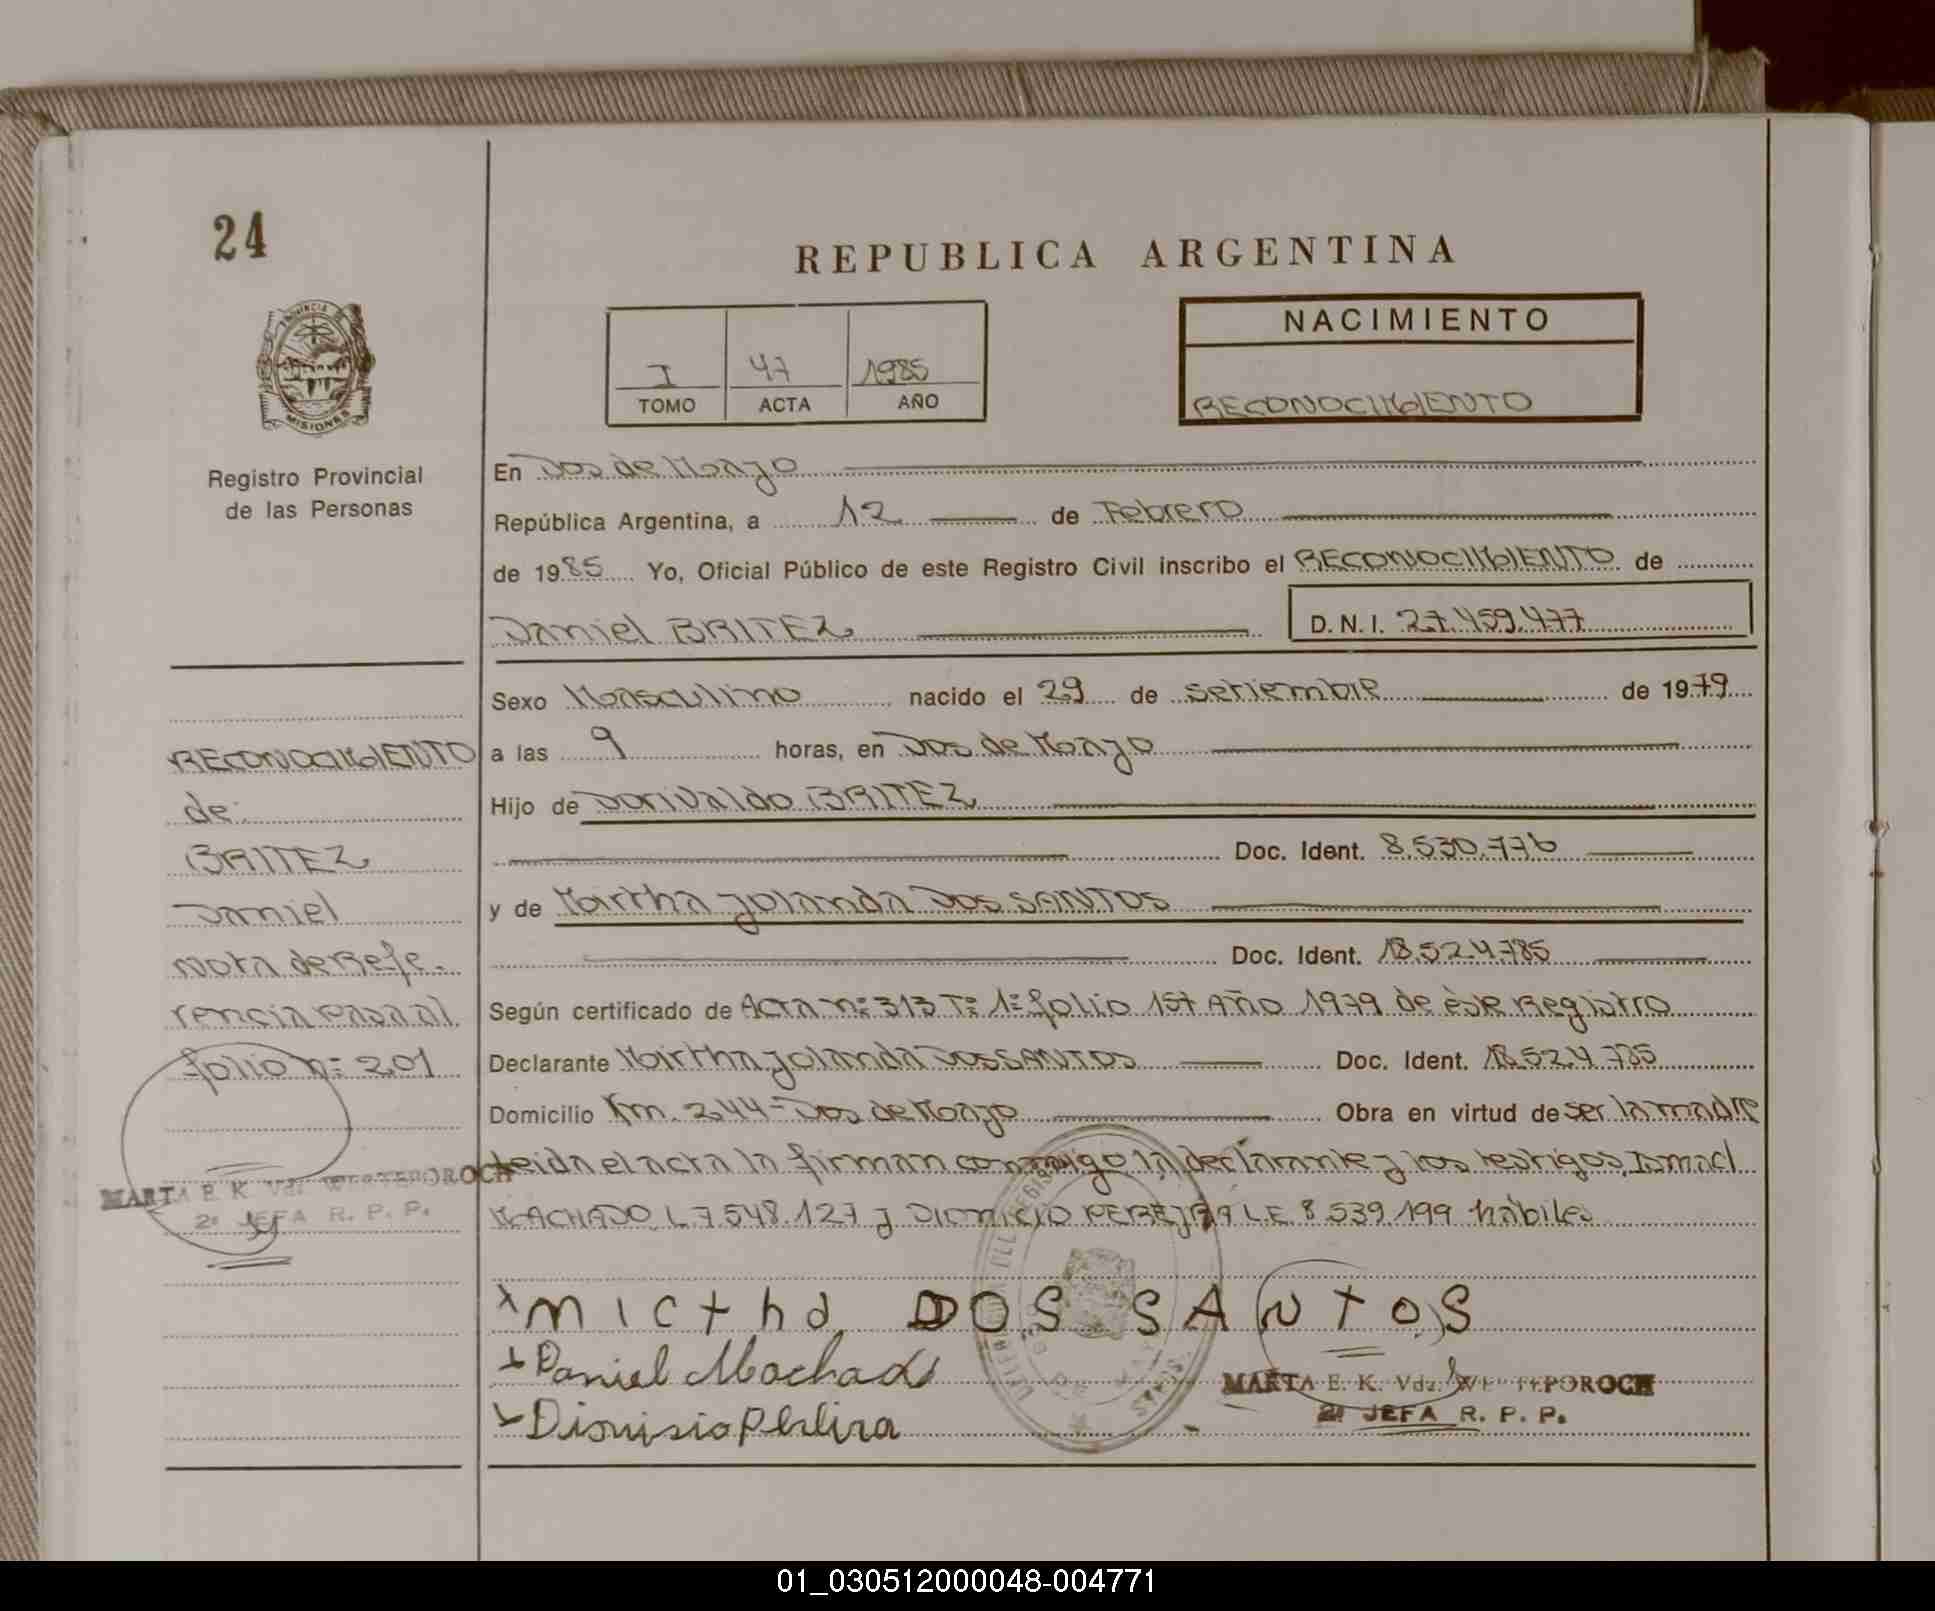 24
REPUBLICA ARGENTINA
PROVINCIA DE
MISIONES
Registro Provincial
de las Personas
I 47 1985
TOMO ACTA AÑO
NACIMIENTO
RECONOCIMIENTO
En Dos de Mayo
República Argentina, a 12 de Febrero
de 1985 Yo, Oficial Público de este Registro Civil inscribo el RECONOCIMIENTO de
Daniel BRITEZ D.N.I. 27.459.477
Sexo Masculino nacido el 29 de setiembre de 1979
a las 9 horas, en Dos de Mayo
Hijo de Dorivaldo BRITEZ
Doc. Ident. 8.530.776
y de Mirtha Jolanda Dos SANTOS
Doc. Ident. 18.524.785
Según certificado de Acta nº 313 Tº 1º folio 157 Año 1979 de éste Registro
Declarante Mirtha Jolanda Dos SANTOS Doc. Ident. 18.524.785
Domicilio Km. 244 - Dos de Mayo Obra en virtud de ser la madre
Leida el acta la firman conmigo la declarante y los testigos, Ismael
MACHADO, L 7 548.127 y DIONICIO PEREJRA L E 8 539 199 hábiles
RECONOCIMIENTO
de:
BRITEZ
Daniel
Nota de Refe.
rencia pasa al
folio nº 201
MARTA E. K. Vda.
2º JEFA R. P. P.
x mictha DOS SANtoS
x Daniel Machado
x Dionisio Pereira
MARTA E. K. Vda.
2º JEFA R. P. P.
01_030512000048-004771